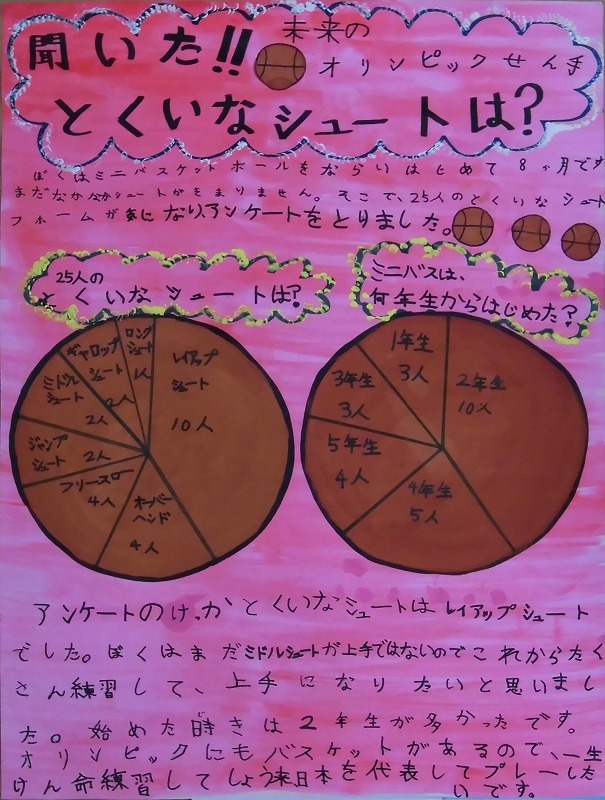 聞いた!!
未来の
オリンピックせん手
とくいなシュートは?
ぼくはミニバスケットボールをならいはじめて8ヶ月です
まだなかなかシュートがきまりません。そこで、25人のとくいなシュート
フォームが気になり、アンケートをとりました。
25人の
とくいなシュートは?
ミニバスは、
何年生からはじめた?
レイアップ
シュート
10人
オーバー
ヘンド
4人
フリースロー
4人
ジャンプ
シュート
2人
ミドル
シュート
2人
ギャロップ
シュート
2人
ロング
シュート
1人
2年生
10人
4年生
5人
5年生
4人
3年生
3人
1年生
3人
アンケートのけっかとくいなシュートはレイアップシュート
でした。ぼくはまだミドルシュートが上手ではないのでこれからたく
さん練習して、上手になりたいと思いまし
た。始めた時きは2年生が多かったです。
オリンピックにもバスケットがあるので、一生
けん命練習してしょう来日本を代表してプレーした
いです。